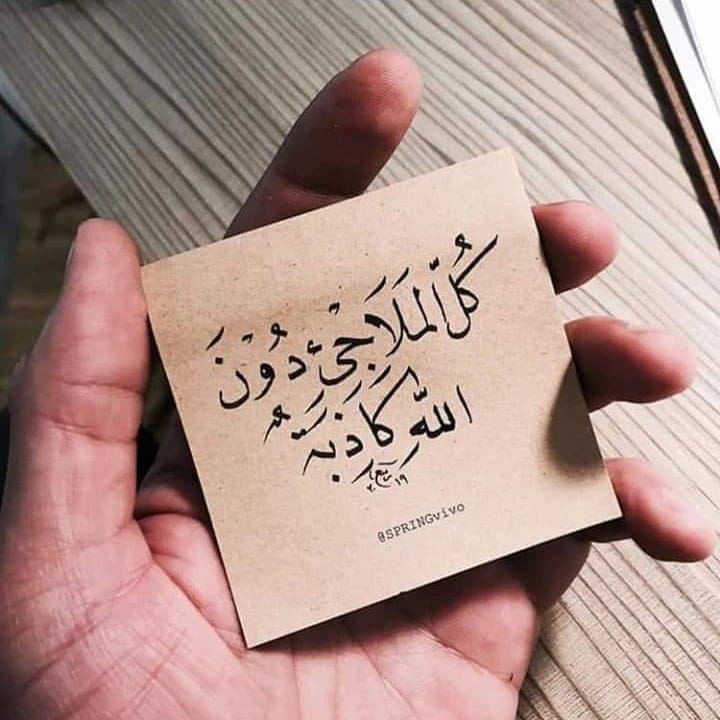 كُلُّ المَلَاجِئِ دُوْنَ
اللّٰهِ كَاذِبَةٌ
@SPRINGvivo